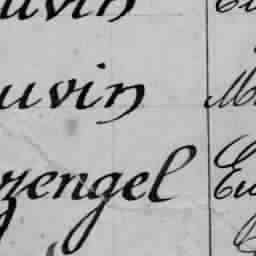 uvin
uvin M
zengel Eu